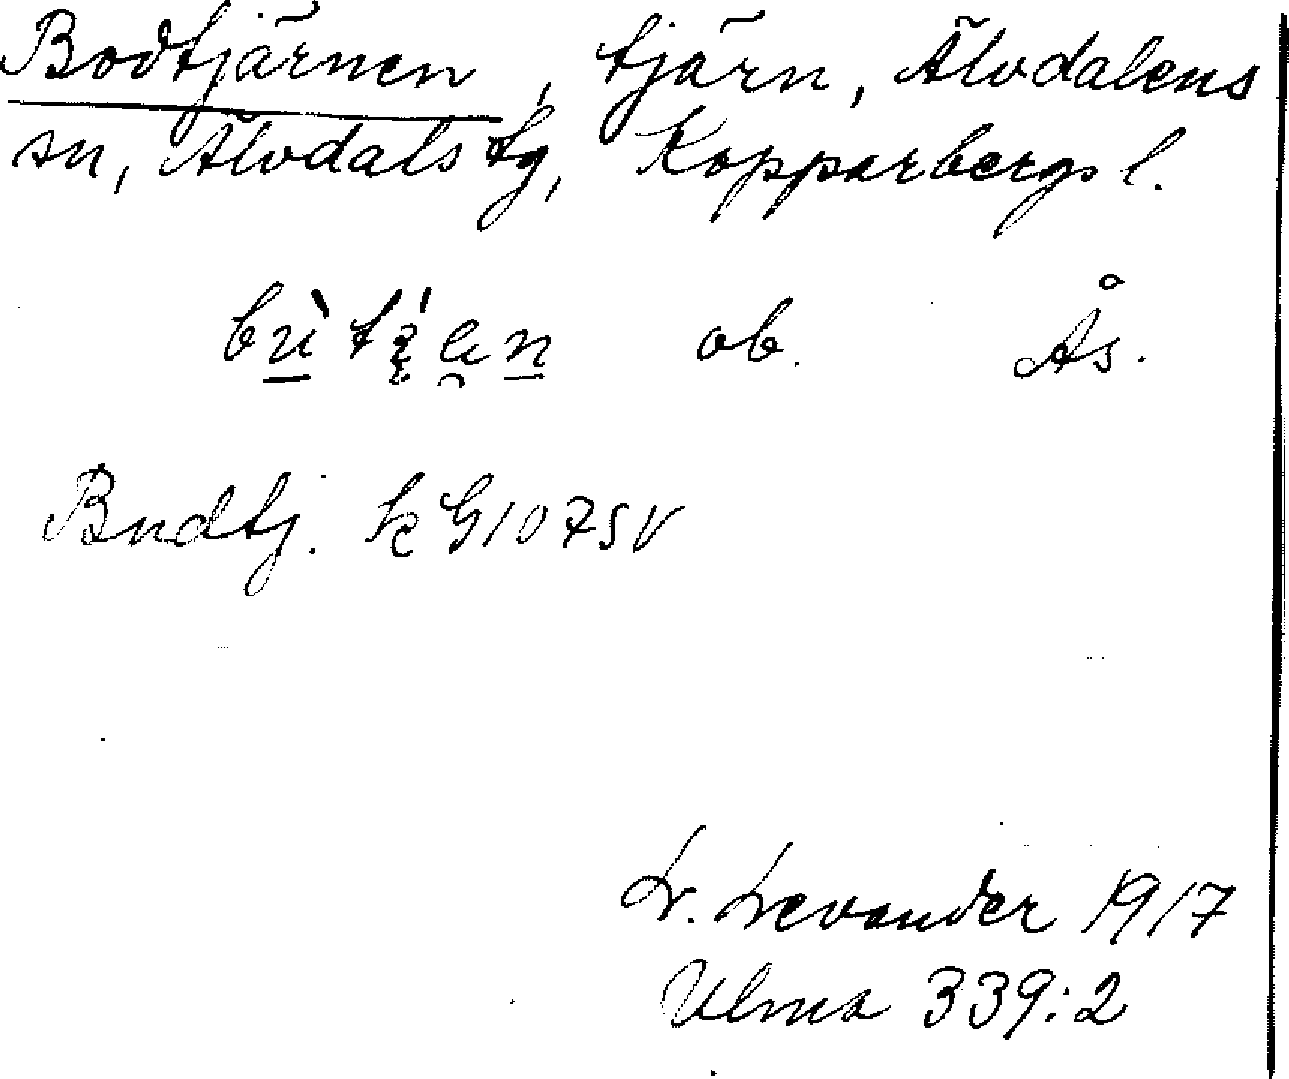 Bodtjärnen, tjärn, Älvdalens
sn, Älvdals tg, Kopparbergs l.
ob. Ås.
Budtj. k G1075V
L. Levander 1917
Ulma 339:2